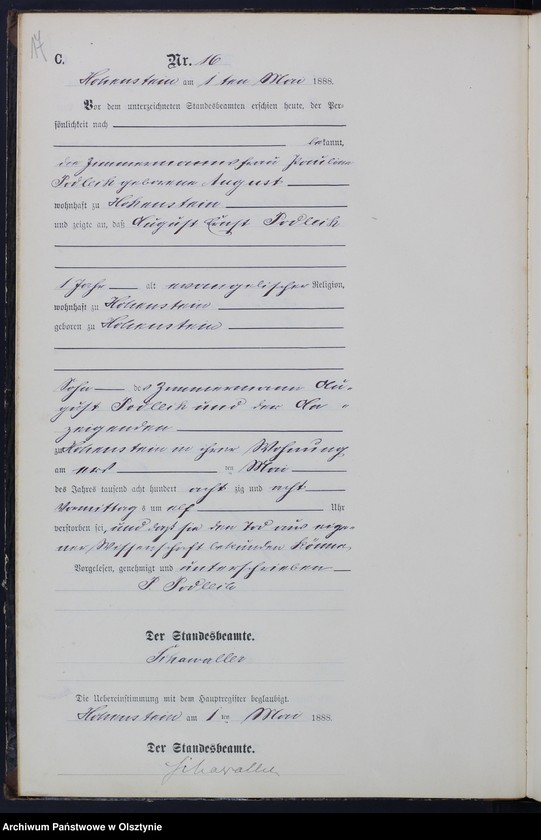 17
C.
Nr. 16
Hohenstein am 1 ten Mai 1888.
Vor dem unterzeichneten Standesbeamten erschien heute, der Per-
sönlichkeit nach
bekannt,
die Zimmermannsfrau Pauline
Podlech geborene August
wohnhaft zu Hohenstein
und zeigte an, daß August Ernst Podlech
1 Jahr alt evangelischer Religion,
wohnhaft zu Hohenstein
geboren zu Hohenstein
Sohn des Zimmermann Au-
gust Podlech und der An-
zeigenden
zu Hohenstein in ihrer Wohnung
am ersten Mai
des Jahres tausend acht hundert acht zig und acht
Vormittags um elf Uhr
verstorben sei, und daß sie den Tod aus eige-
ner Wissenschaft bekunden könne.
Vorgelesen, genehmigt und unterschrieben
P Podlech
Der Standesbeamte.
Schawaller
Die Uebereinstimmung mit dem Hauptregister beglaubigt.
Hohenstein am 1 ten Mai 1888.
Der Standesbeamte.
Schawaller
Archiwum Państwowe w Olsztynie